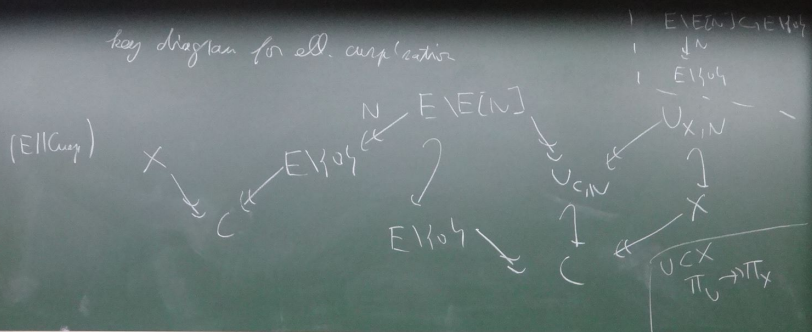 key diagram for ell. cusp'ization
E\E[N] ⊂ E\{o}
↓ N
E\{o}
(EllCusp)
X
C
E\{o}
N
E\E[N]
E\{o}
U_{C,N}
C
U_{X,N}
X
U⊂X
Π_U → Π_X